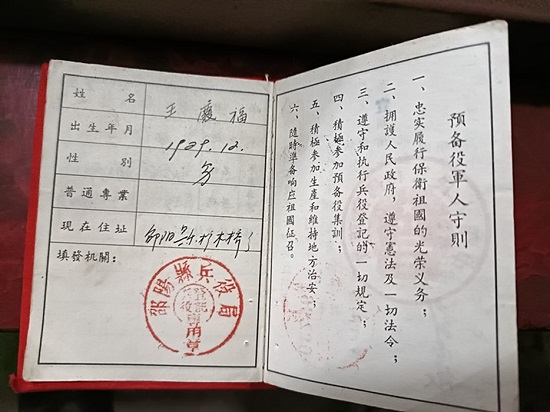 姓名 王 福
出生年月 1929.12.
性别 男
普通專業
現在住址 邵阳
填發机關：
邵陽縣兵役局
兵役登記
專用章
預备役軍人守则
一、忠实履行保衛祖國的光荣义务；
二、拥護人民政府，遵守憲法及一切法令；
三、遵守和执行兵役登記的一切規定；
四、積極参加預备役集訓；
五、積極参加生產和維持地方治安；
六、隨時準备响应祖國征召。